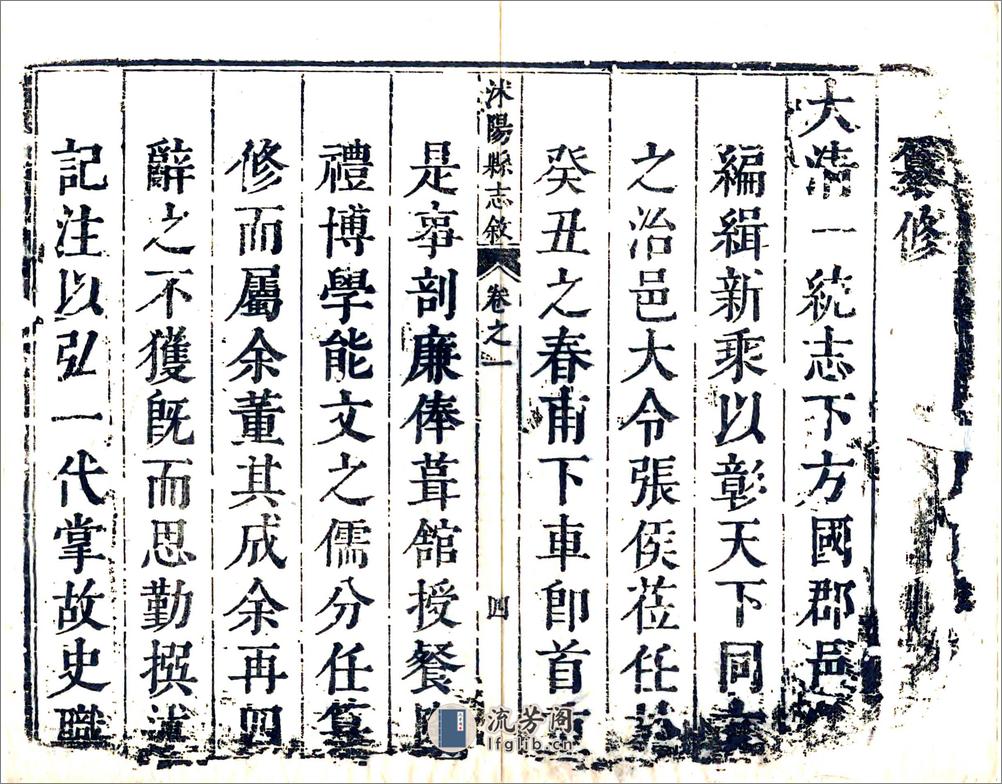 纂修
大清一統志下方國郡邑
編緝新乘以彰天下同文
之治邑大令張侯莅任於
癸丑之春甫下車卽首重
沭陽縣志敘 卷之一 四
是事剖廉俸葺館授餐
禮博學能文之儒分任纂
修而屬余董其成余再四
辭之不獲旣而思勤撰述
記注以弘一代掌故史職
流芳阁
lfglib.cn